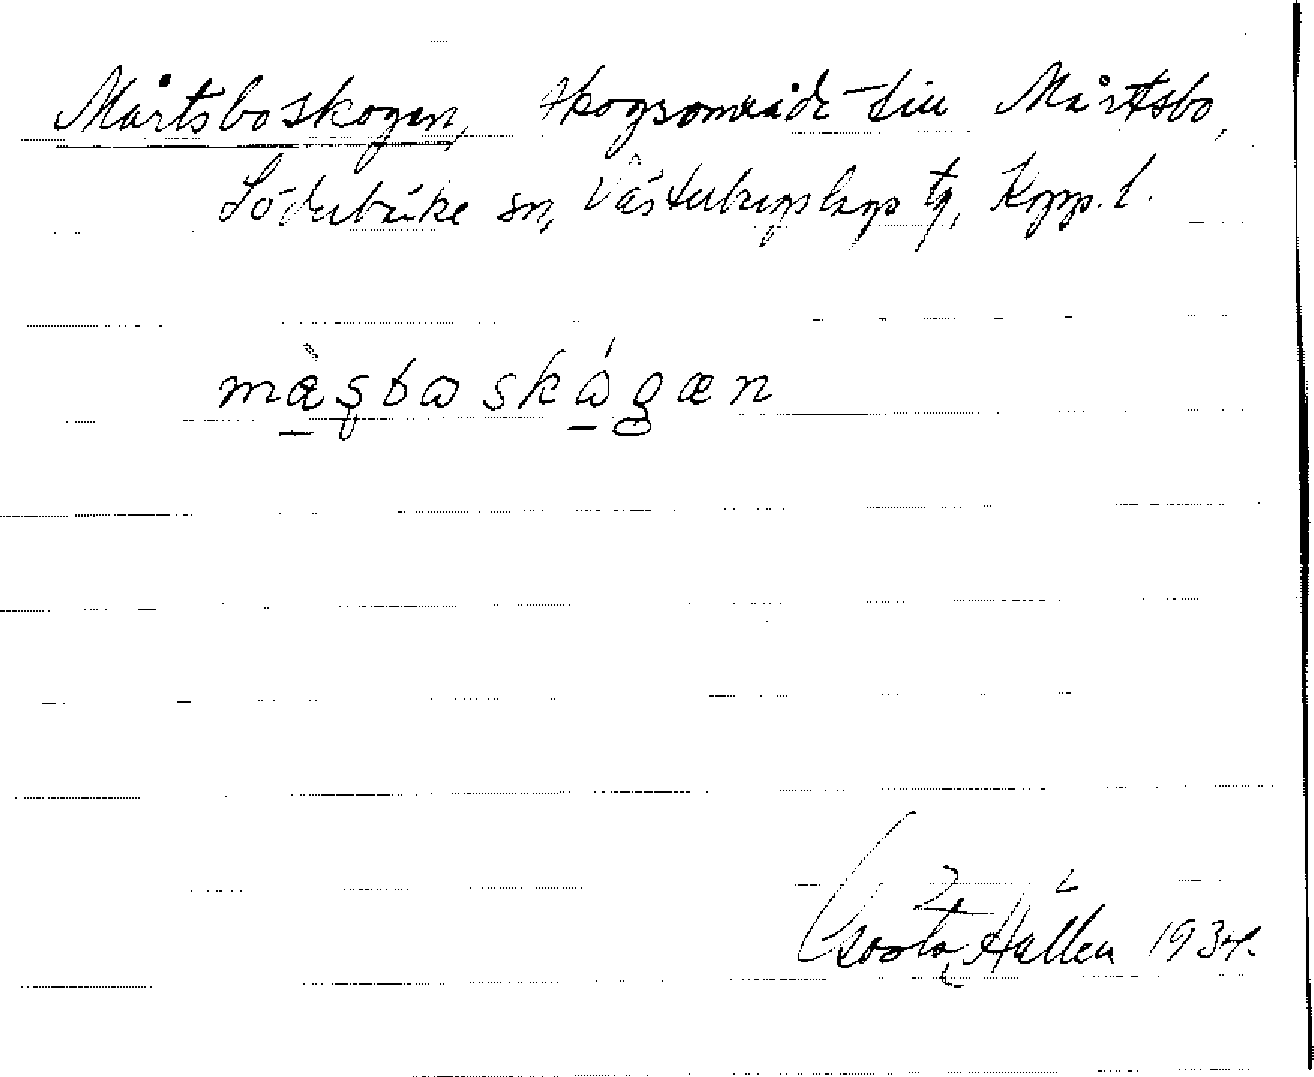 Mårtsboskogen, skogsområde till Mårtsbo,
Söderbärke sn, Västerbergslags tg, Kopp. l.
mæ̀ṣbωskώgæn
Gösta Hallén 1934.